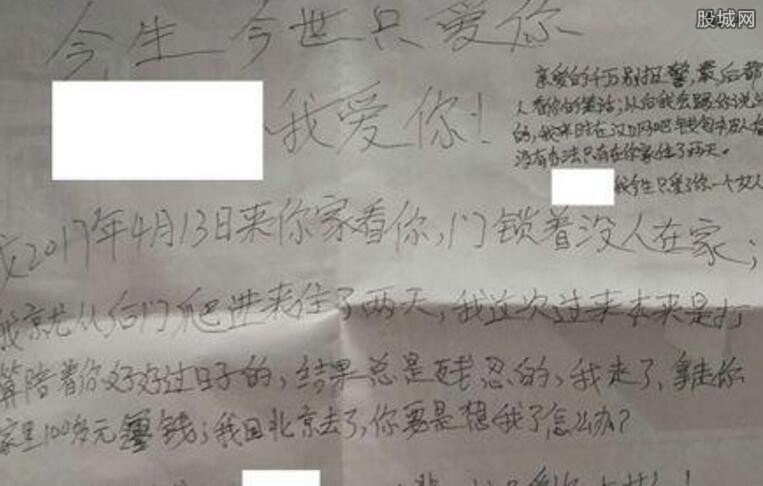 股城网
今生今世只爱你
我爱你!
亲爱的千万别报警,最后都
人看你的笑话;以后我会跟你说
的,我来时在汉口网吧钱包市
没有办法只有在你家住了两天。
我今生只爱了你一个女人
2017年4月13日来你家看你,门锁着没人在家;
我就从后门爬进来住了两天,我这次过来本来是打
算陪着你好好过日子的,结果总是残忍的,我走了,拿走你
家里100多元零钱;我回北京去了,你要是想我了怎么办?